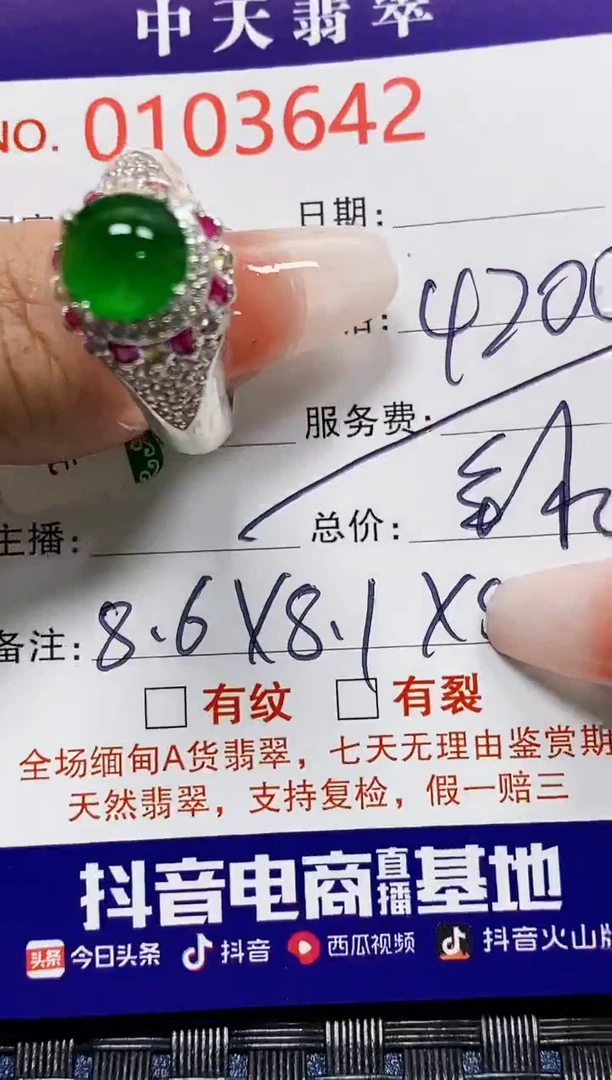 中天翡翠
NO. 0103642
日期:
4200
服务费:
主播:
总价:
备注: 8.6X8.1X
□ 有纹 □ 有裂
全场缅甸A货翡翠，七天无理由鉴赏期
天然翡翠，支持复检，假一赔三
抖音电商直播基地
头条 今日头条 抖音 西瓜视频 抖音火山版